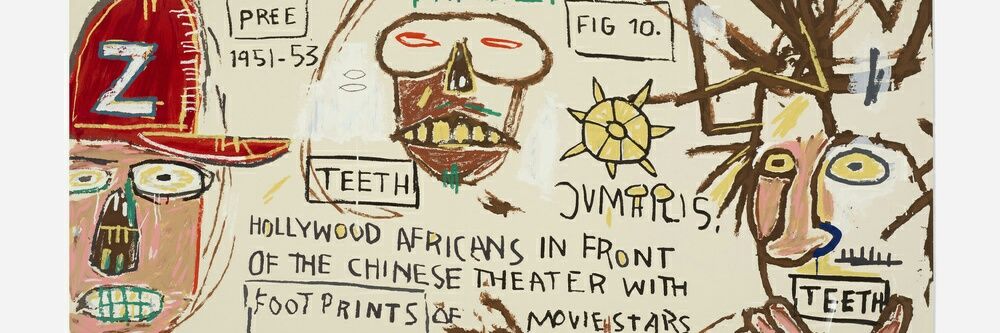 PREE
1951-53
FIG 10.
Z
TEETH
JVMPRIS.
HOLLYWOOD AFRICANS IN FRONT
OF THE CHINESE THEATER WITH
FOOT PRINTS OF MOVIE STARS
TEETH